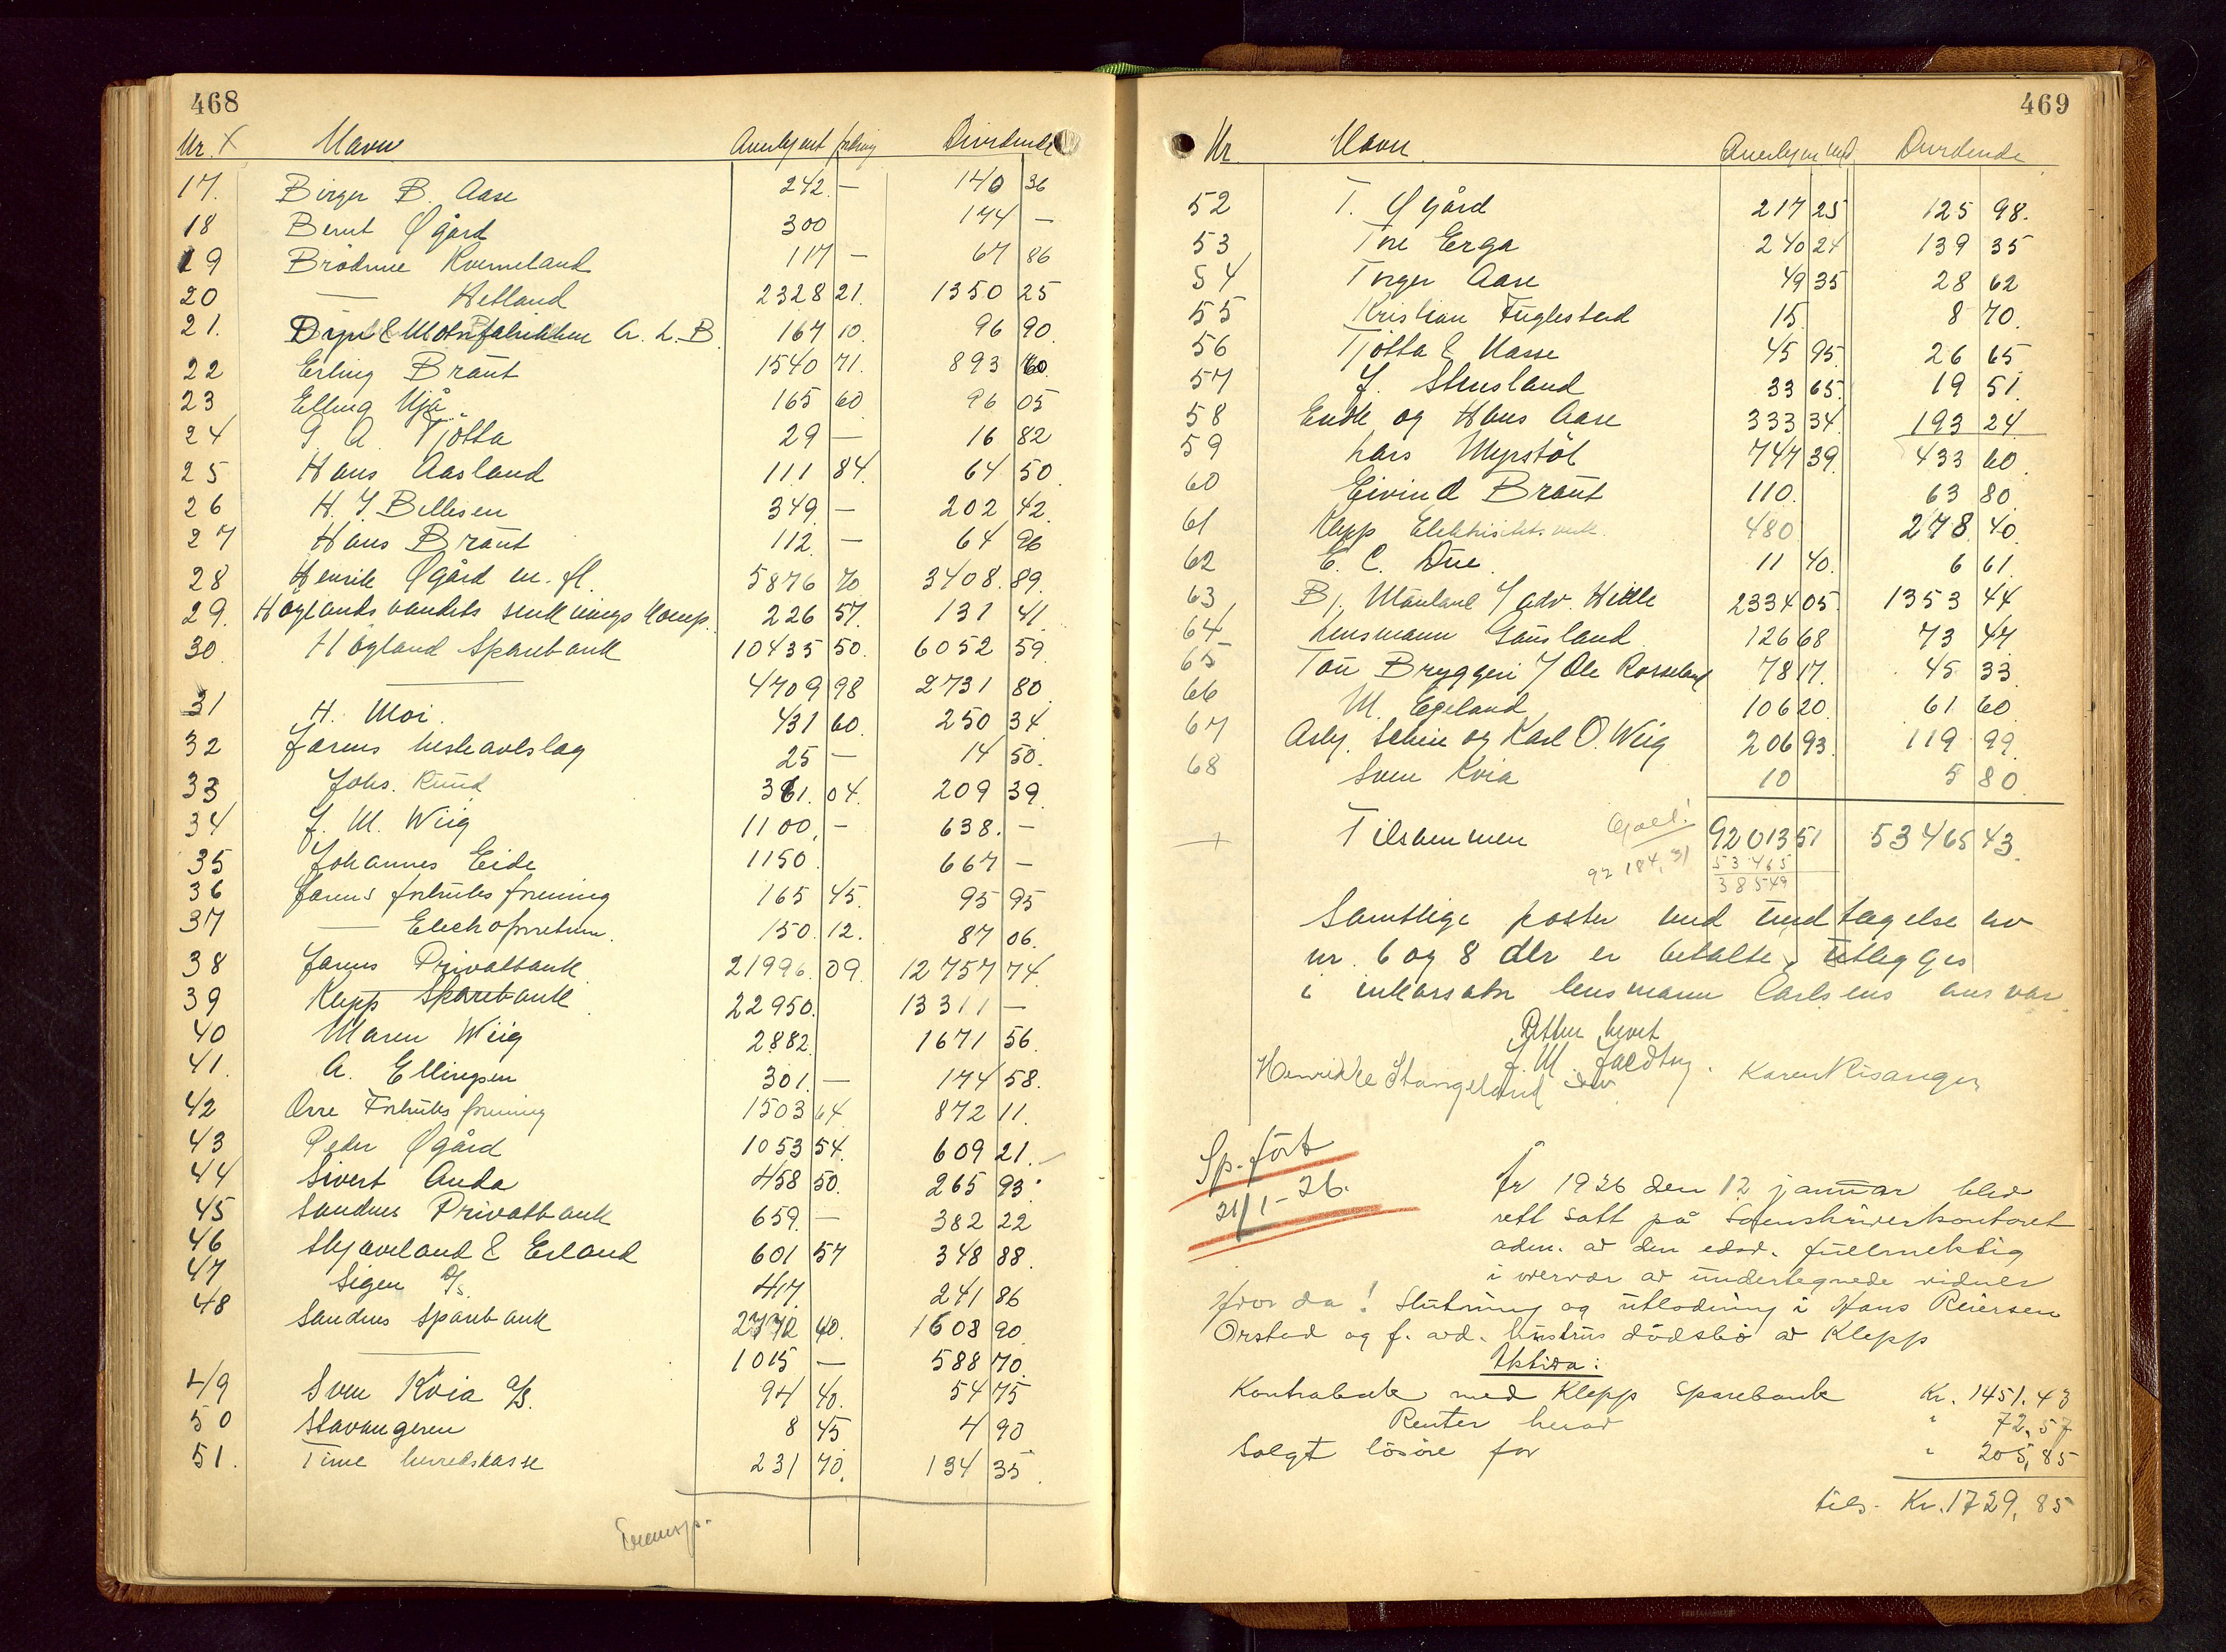 468
Nr. X Navn Anerkjent fordring Dividende
17. Birger B. Aase 242.— 140 36
18 Bernt Øgård 300 174 —
19 Brödrene Kverneland 117 — 67 86
20 — Hetland 2328 21. 1350 25
21. & Motorfabrikken A. L. B. 167 10. 96 90.
22 Erling Bräut 1540 71. 893 60.
23 Elling Njå 165 60 96 05
24 G. A. Tjötta 29 — 16 82
25 Hans Aasland 111 84. 64 50.
26 H. J. Bellesen 349 — 202 42.
27 Hans Bräut 112. — 64 96
28 Henrik Øgård m. fl. 5876 70 3408. 89.
29. Høylandsvandets senkningskomp. 226 57. 131 41.
30. Høyland Sparebank 10435 50. 6052 59.
— 4709 98 2731 80.
31 H. Moi. 431 60. 250 34.
32 Jærens hesteavlslag 25 — 14 50.
33 Johs. Ruud 361. 04. 209 39.
34 J. M. Wiig 1100. — 638. —
35 Johannes Eide 1150. 667 —
36 Jærens forbruksforening 165 45. 95 95
37 — Electroforretn. 150. 12. 87 06.
38 Jærens Privatbank 21996. 09. 12757 74.
39 Klepp Sparebank 22950. 13311 —
40 Maren Wiig 2882. 1671 56.
41. A. Ellingsen 301. — 174 58.
42 Orre Forbruksforening 1503 64 872 11.
43 Peder Øgård 1053 54. 609 21.
44 Sivert Anda 458 50. 265 93.
45 Sandnes Privatbank 659. — 382 22
46 Skjæveland & Eiland 601 57 348 88.
47 Sigen A/S. 417. 241 86
48 Sandnes Sparebank 2772 40. 1608 90.
— 1015 — 588 70.
49 Sven Kvia A/S. 94 40. 54 75
50 Stavangeren 8 45 4 90
51. Time herredskasse 231 70. 134 35.
Transp.
469
Nr. Navn Anerkjent Dividende
52 T. Øgård 217 25 125 98.
53 Tore Erga 240 24 139 35
54 Torger Aase 49 35 28 62
55 Kristian Fuglestad 15. 8 70.
56 Tjötta & Nasse 45 95. 26 65
57 J. Stensland 33 65. 19 51.
58 Endre og Hans Aase 333 34. 193 24.
59 Lars Myrstöl 747 39. 433 60.
60 Eivind Bräut 110. 63 80.
61 Klepp Elektrisitetsverk. 480 278. 40.
62 E. C. Due. 11 40. 6 61.
63 Bj. Mauland / adv. Hille 2334 05. 1353 44
64 Lensmann Gausland 126 68 73 47
65 Tou Bryggeri / Ole Rosseland 78 17. 45 33.
66 M. Egeland 106 20. 61 60.
67 Asbj. Selvie og Karl O. Wiig 206 93. 119 99.
68 Sven Kvia 10 5 80.
Tilsammen 92013 51 53465 43.
92 184, 31
53 465
38 549
Samtlige poster med undtagelse av
nr. 6 og 8 der er betalte, utlegges
i inkassator lensmann Carlsens ansvar
Retten hevet
J. M. Jaedtvg.
Henrikke Stangeland Karen Risanger
Sp. fört
21/1-26.
År 1926 den 12 januar blev
rett satt på Sorenskriverkontoret
adm. av den edsv. fullmektig
i overvær av undertegnede vidner
Hvor da! Slutning og utlodning i Hans Reiersen
Orstad og f. avd. hustrus dödsbo av Klepp
Aktiva:
Kontrabok med Klepp Sparebank Kr. 1451.43
Renter herav " 72,57
Solgt lösöre for " 205,85
tils. Kr. 1729,85